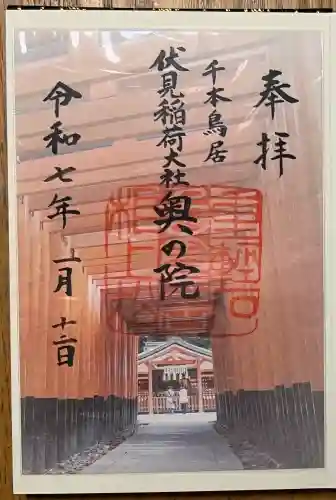 奉拝
千本鳥居
伏見稲荷大社
奥の院
令和七年一月十二日